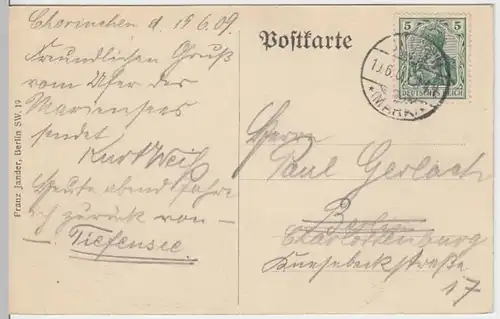 Chorinchen d. 19.6.09.
Freundlichen Gruß
vom Ufer des
Mariensees
sendet
Kurt Weiß
Heute abend fahre
ich zurück von
Tiefensee.
Franz Jander, Berlin SW. 19
Postkarte
5 5
DEUTSCHES REICH
(MARK)
Herrn
Paul Gerlach
Berlin
Charlottenburg
Knesebeckstraße
17